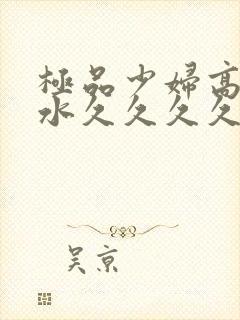 極品少婦高
水久久久久
吴京